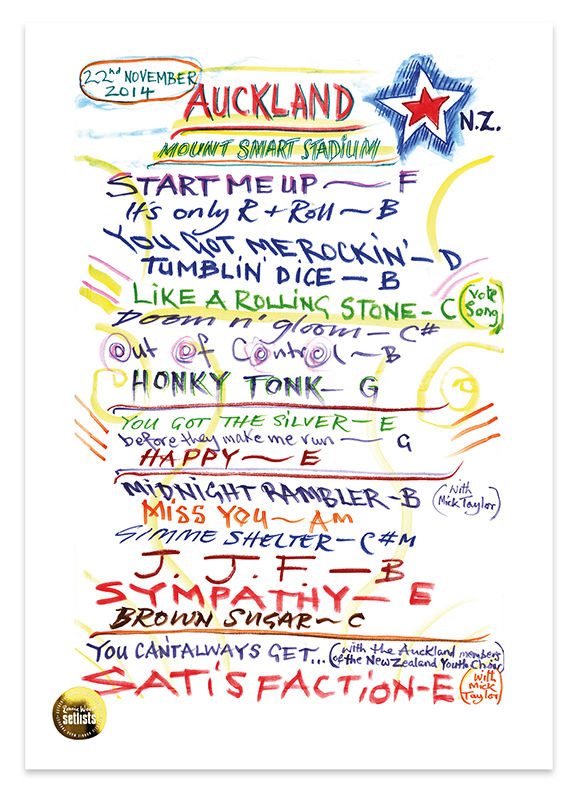 22nd NOVEMBER
2014
AUCKLAND
N.Z.
MOUNT SMART STADIUM
START ME UP — F
It's only R + Roll — B
YOU GOT ME ROCKIN' — D
TUMBLIN' DICE — B
LIKE A ROLLING STONE - C (Vote Song)
Doom n' gloom — C#
Out Of Control — B
HONKY TONK — G
YOU GOT THE SILVER — E
before they make me run — G
HAPPY — E
MIDNIGHT RAMBLER - B (with Mick Taylor)
MISS YOU — Am
GIMME SHELTER — C#M
J. J. F. — B
SYMPATHY — E
BROWN SUGAR — C
YOU CAN'T ALWAYS GET... (with the Auckland members
of the New Zealand Youth Choir)
SATISFACTION - E (with Mick Taylor)
setlists